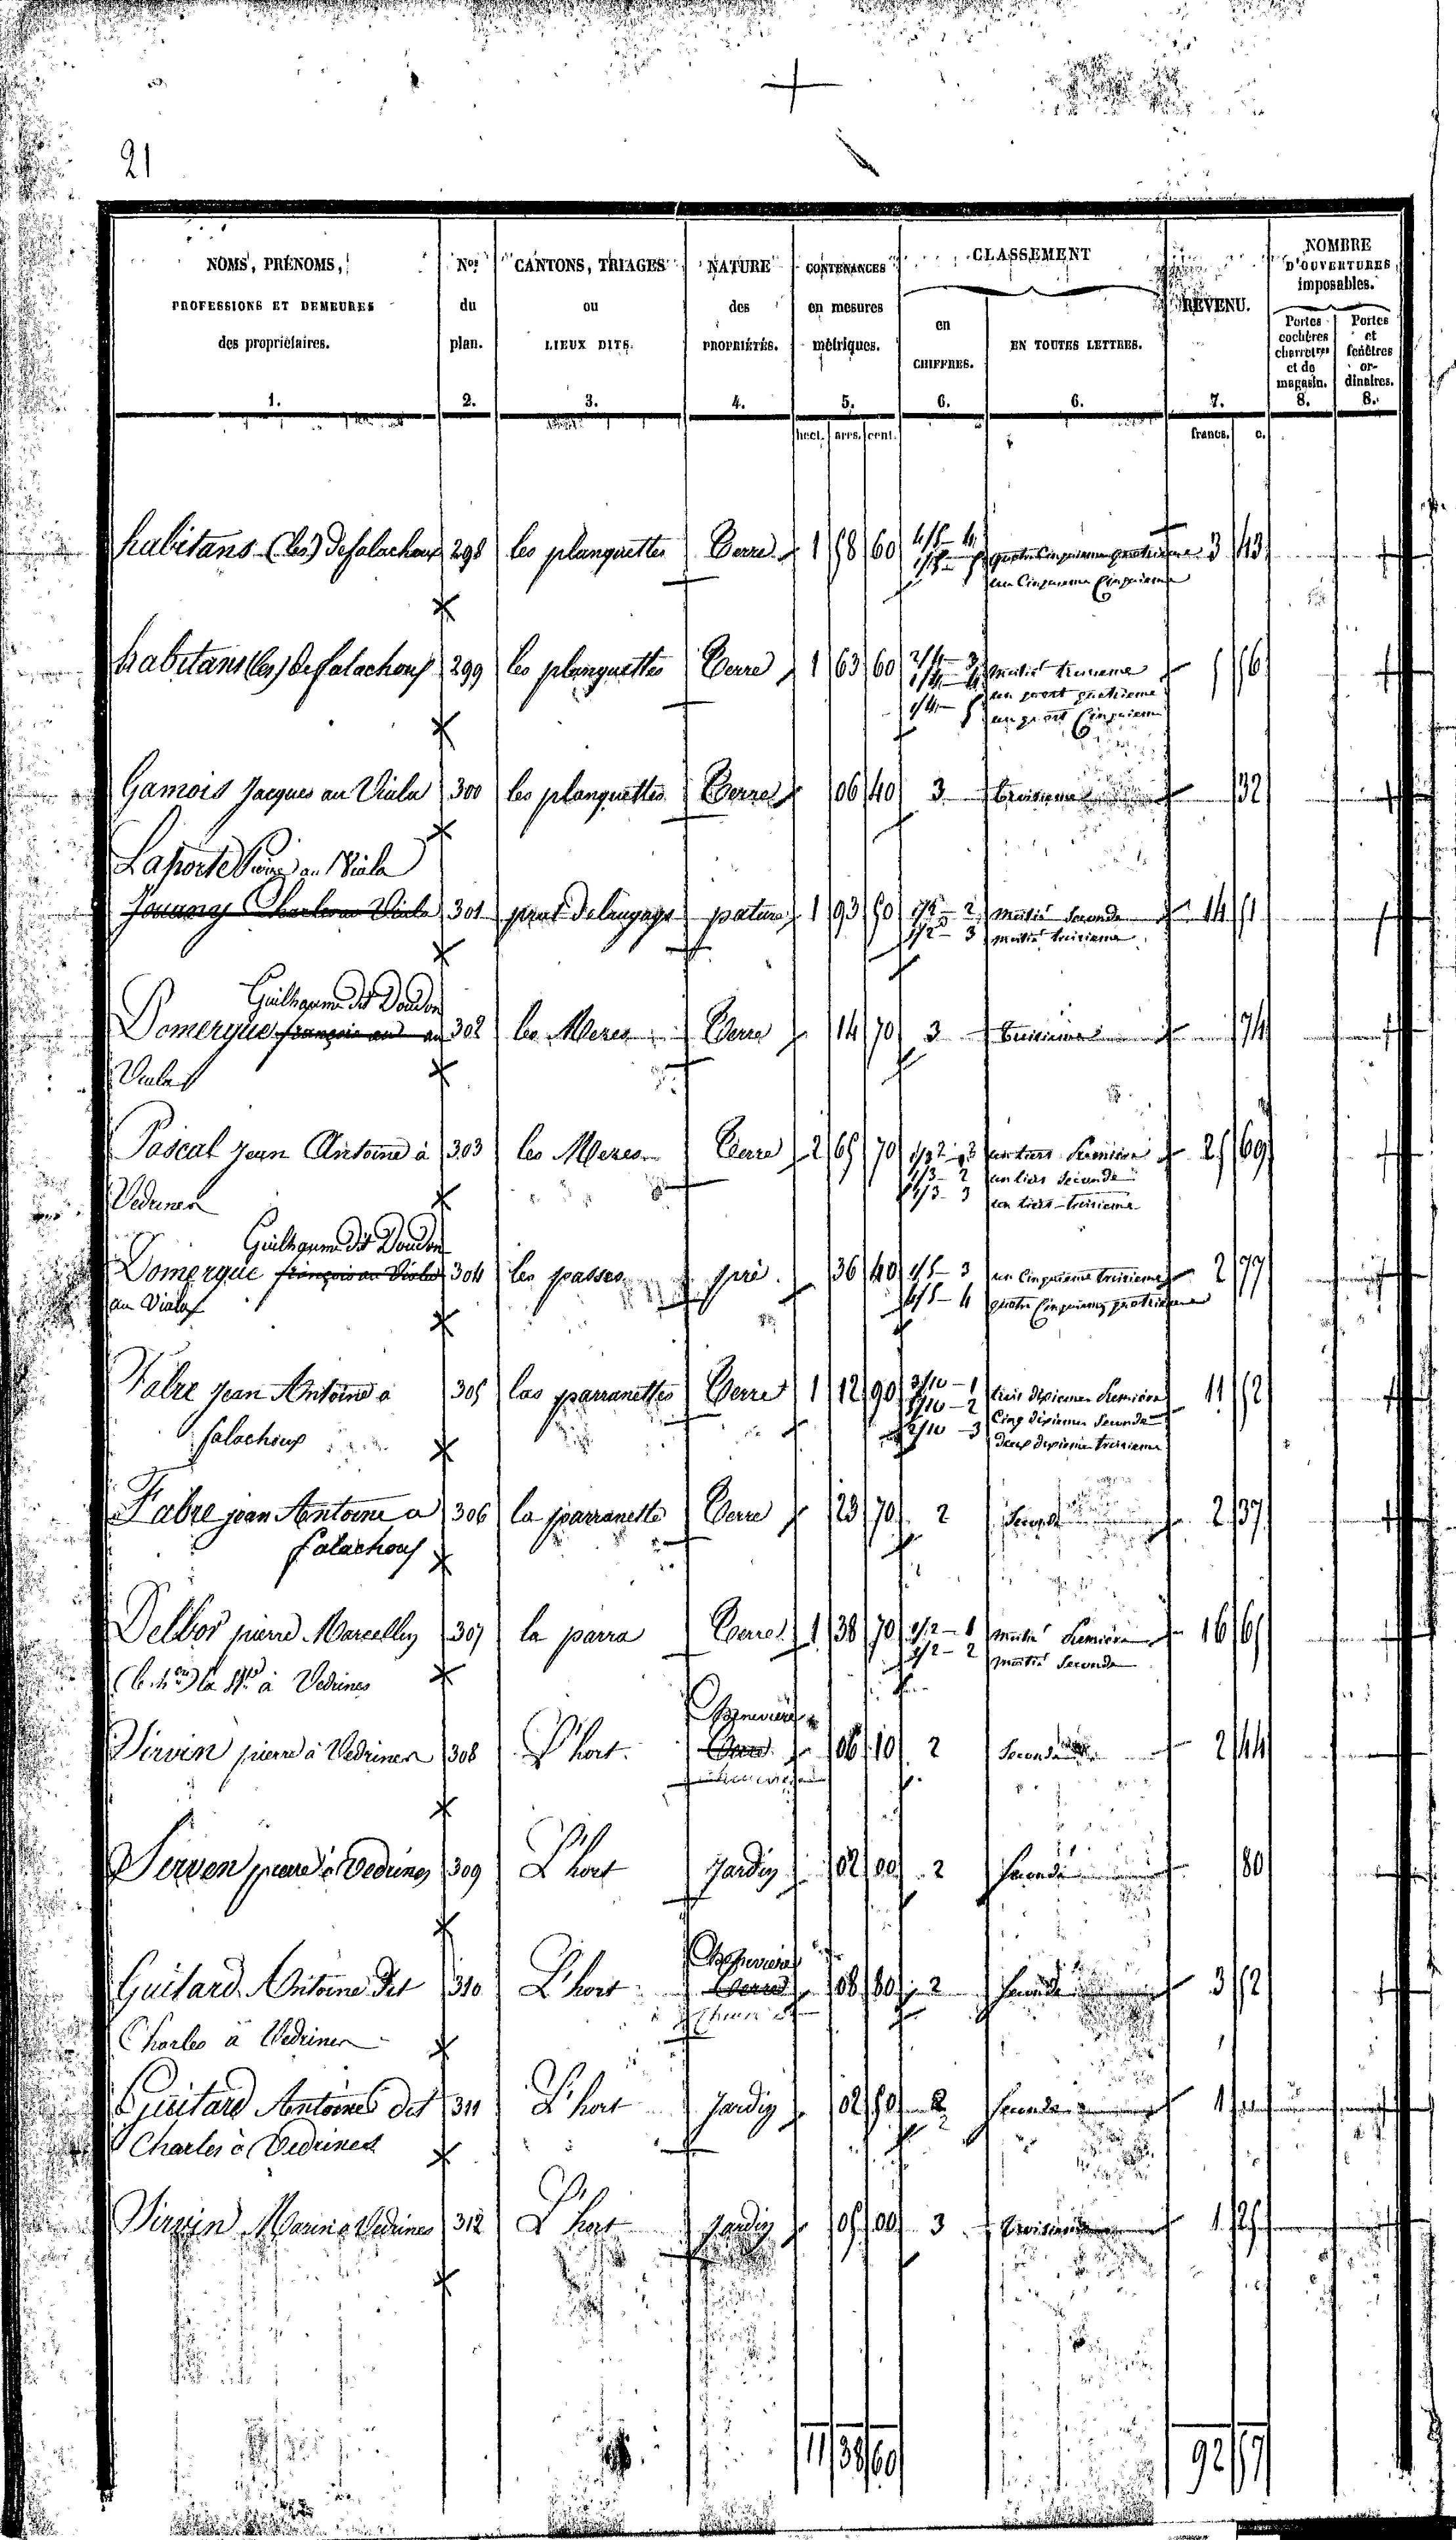 21
NOMS, PRÉNOMS, PROFESSIONS ET DEMEURES des propriétaires. 1.
Nos du plan. 2.
CANTONS, TRIAGES ou LIEUX DITS. 3.
NATURE des PROPRIÉTÉS. 4.
CONTENANCES en mesures métriques. 5.
CLASSEMENT
en CHIFFRES. 6.
EN TOUTES LETTRES. 6.
REVENU. 7.
NOMBRE D'OUVERTURES imposables.
Portes cochères charretres et de magasin. 8.
Portes et fenêtres ordinaires. 8.
hect. ares. cent. francs. c.
habitans (les) de falachoux 298 les planquettes Terre 1 58 60 4/5 - 4 quatre Cinquieme quatrieme 3 43
1/5 - 5 un Cinquieme Cinquieme
habitans (les) de falachoux 299 les planquettes Terre 1 63 60 2/4 - 3 moitié troisieme 5 56
1/4 - 4 un quart quatrieme
1/4 - 5 un quart Cinquieme
Gamois Jacques au Viala 300 les planquettes Terre 06 40 3 troisieme 32
Laporte Pierre au Viala
301 prat pature 1 93 50 1/2 - 2 moitié Seconde 14 51
1/2 - 3 moitié troisieme
Guilhaume dit Doudon
Domergue françois au 302 les Mezes Terre 14 70 3 troisieme 74
Viala
Pascal Jean Antoine à 303 les Mezes Terre 2 65 70 un tiers Premiere 25 69
1/3 - 2 un tiers Seconde
Vedrines 1/3 - 3 un tiers troisieme
Guilhaume dit Doudon
Domergue françois au Viala 304 les passes pré 36 40 1/5 - 3 un Cinquieme troisieme 2 77
au Viala 4/5 - 4 quatre Cinquiemes quatrieme
Fabre Jean Antoine à 305 las parranettes Terre 1 12 90 3/10 - 1 trois dixiemes Premiere 11 52
5/10 - 2 Cinq dixiemes Seconde
falachoux 2/10 - 3 deux dixieme troisieme
Fabre jean Antoine a 306 la parranette Terre 23 70 2 Seconde 2 37
falachoux
Delbos pierre Marcellin 307 la parra Terre 1 38 70 1/2 - 1 moitié Premiere 16 65
à Vedrines 1/2 - 2 moitié Seconde
Chenevière
Pierre à Vedrines 308 L'hort Terre 06 10 2 Seconde 2 44
Serven pierre à Vedrines 309 L'hort Jardin 02 00 2 Seconde 80
Chenevière
Guitard Antoine dit 310 L'hort Terre 08 80 2 Seconde 3 52
Charles à Vedrines
Guitard Antoine dit 311 L'hort Jardin 02 50 2 Seconde 1
Charles à Vedrines
à Vedrines 312 L'hort Jardin 05 00 3 troisieme 1 25
11 38 60 92 57